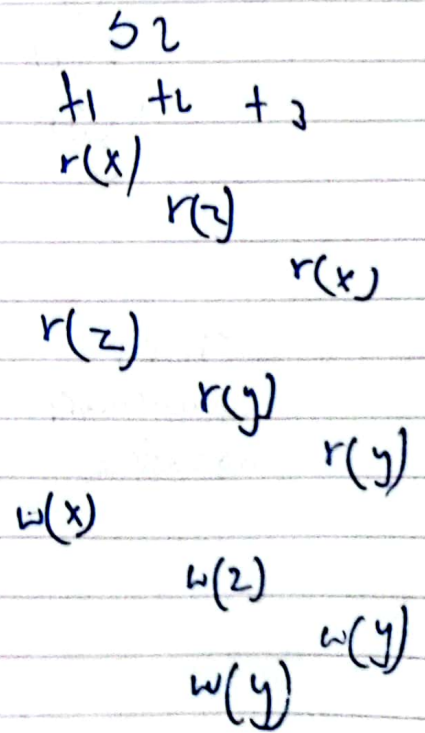 S2
t1 t2 t3
r(x)
r(z)
r(x)
r(z)
r(y)
r(y)
w(x)
w(z)
w(y)
w(y)